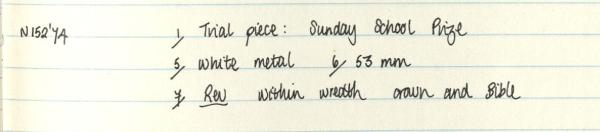 N152'74 1/ Trial piece: Sunday School Prize
5/ White metal 6/ 53 mm
7/ Rev within wreath crown and Bible